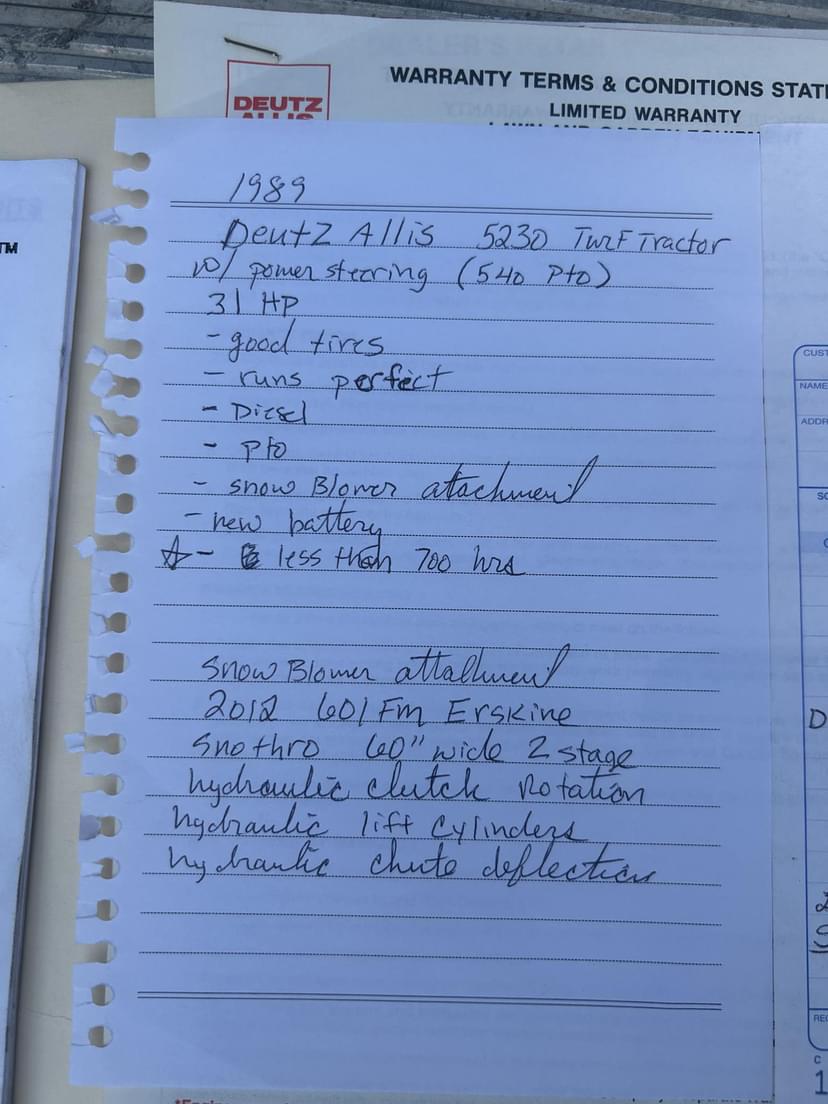 DEUTZ
ALLIS
WARRANTY TERMS & CONDITIONS STAT
LIMITED WARRANTY
TM
1989
Deutz Allis 5230 Turf Tractor
w/ power steering (540 Pto)
31 HP
- good tires
- runs perfect
- Diesel
- Pto
- snow Blower atachment
- new battery
☆ - less than 700 hrs
Snow Blower attatchment
2012 601 Fm Erskine
Sno thro 60" wide 2 stage
hydraulic clutck Rotation
hydraulic lift cylinders
hydraulic chute deflection
CUST
NAME
ADDR
SO
D
REC
C
1